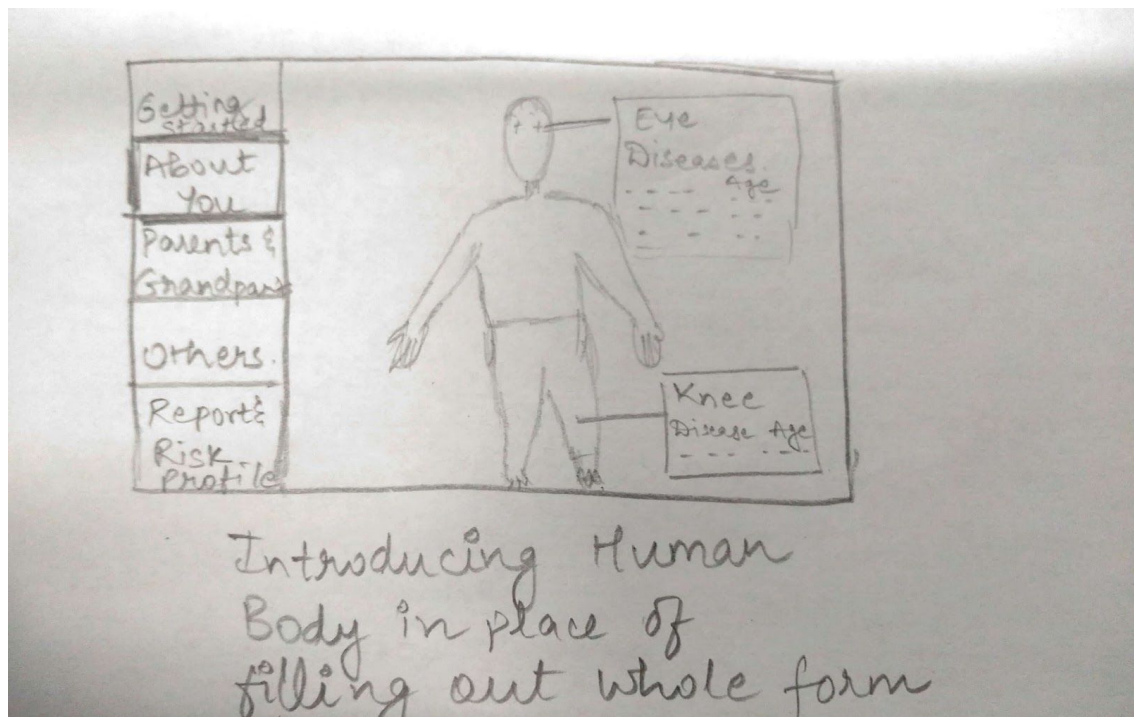 Getting
Started
About
You
Parents &
Grandpar
Others.
Report &
Risk
Profile
Eye
Diseases.
Age
Knee
Disease Age
Introducing Human
Body in place of
filling out whole form